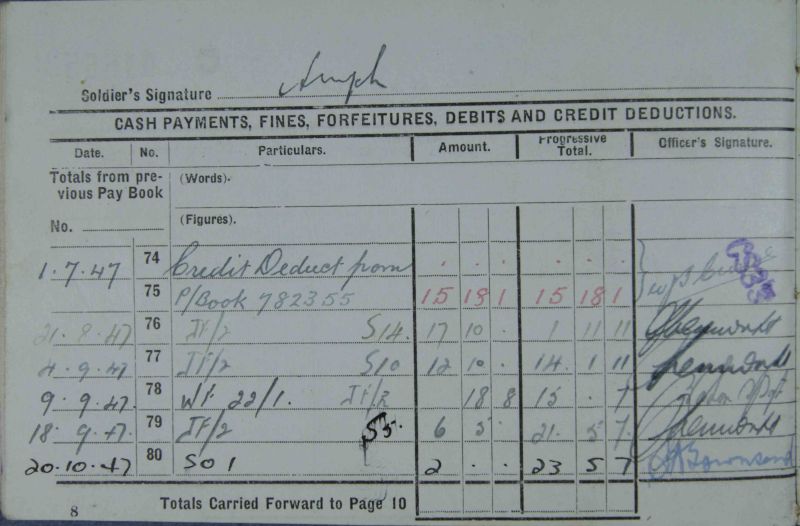 Soldier's Signature
CASH PAYMENTS, FINES, FORFEITURES, DEBITS AND CREDIT DEDUCTIONS.
Date. No. Particulars. Amount. Progressive Total. Officer's Signature.
Totals from pre-vious Pay Book (Words).
No. (Figures).
1.7.47 74 Credit Deduct from . . . . . .
75 P/Book 782355 15 18 1 15 18 1
21.8.47 76 S14. 17 10 . 1 11 11
4.9.47 77 S10 12 10 . 14 1 11
9.9.47 78 22/1. 18 8 15 . 7
18.9.47 79 S5. 6 5 . 21 5 7
20.10.47 80 SO 1 2 . . 23 5 7
Totals Carried Forward to Page 10
8